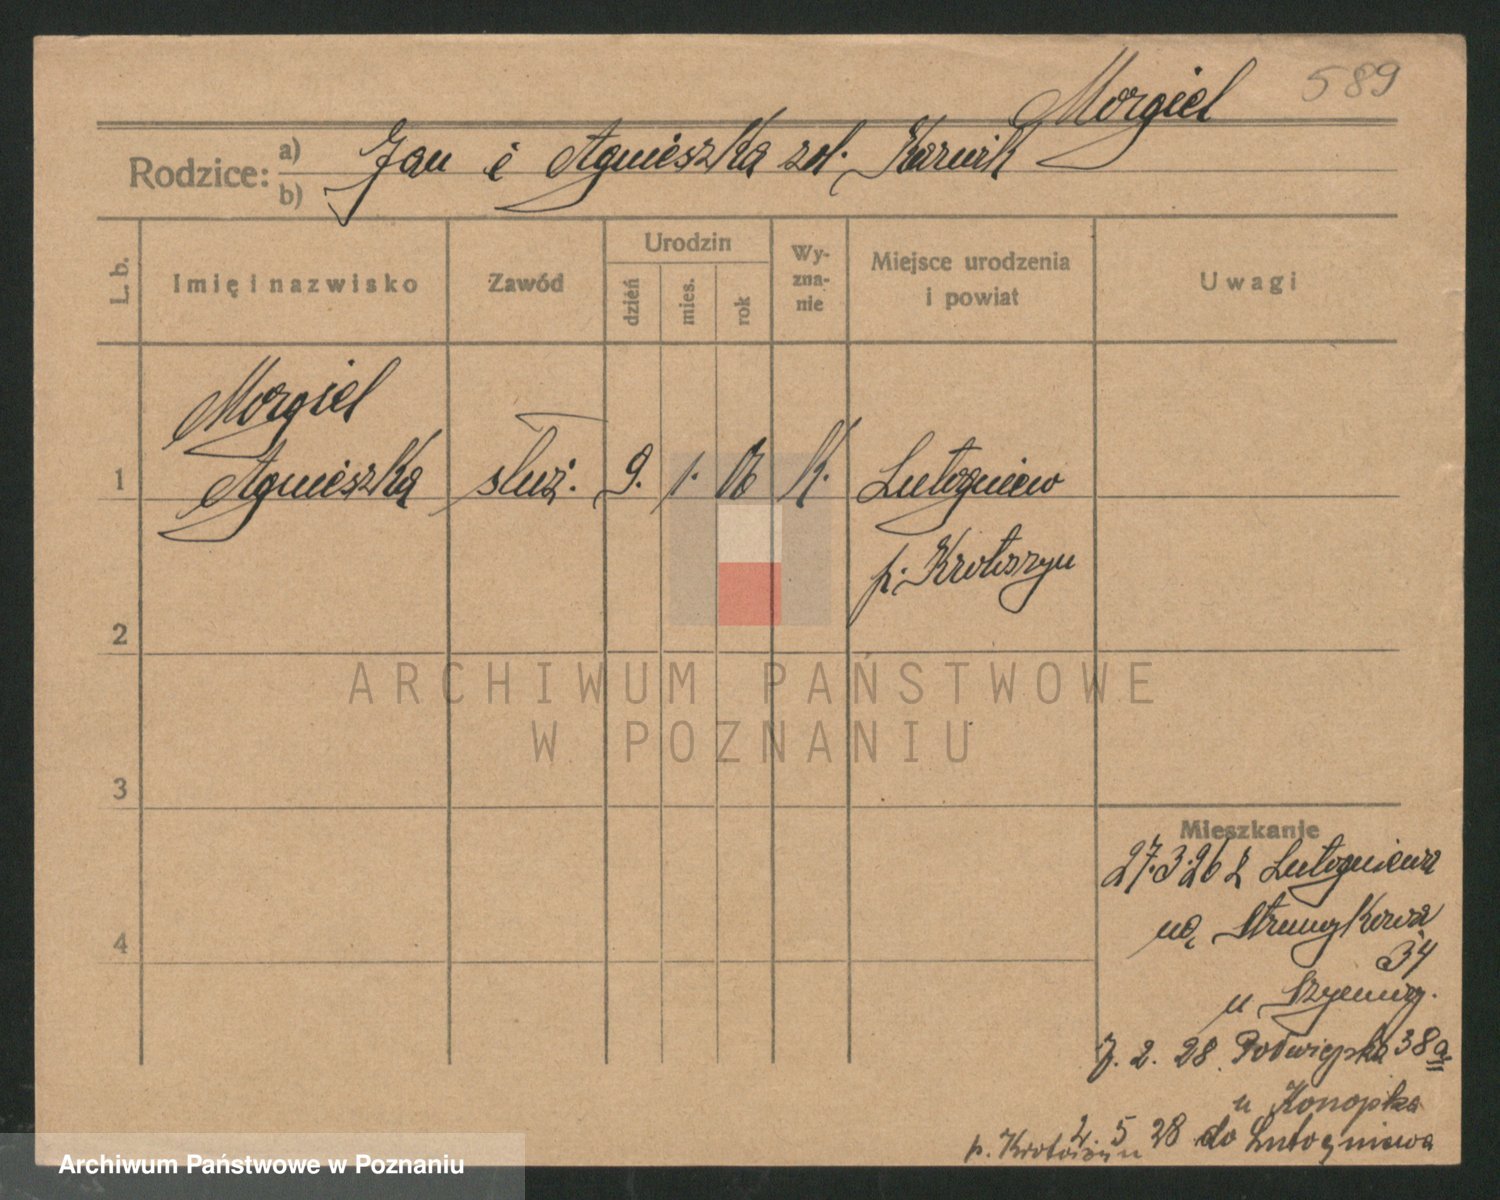 589
Morgiel
Rodzice: a) b) Jan i Agnieszka zd. Karwik
L. b.
Imię i nazwisko
Zawód
Urodzin
dzień
mies.
rok
Wy-
zna-
nie
Miejsce urodzenia
i powiat
Uwagi
Morgiel
1 Agnieszka służ. 9. 1. 06 k. Lutogniew
p. Krotoszyn
2
3
4
Mieszkanie
27.3.26 z Lutogniewa
na Strumykowa
34
u
7. 2. 28. Podwiejska 38a II
u Konopka
2. 5 28 do Lutogniewa
p. Krotoszyn
ARCHIWUM PAŃSTWOWE
W POZNANIU
Archiwum Państwowe w Poznaniu